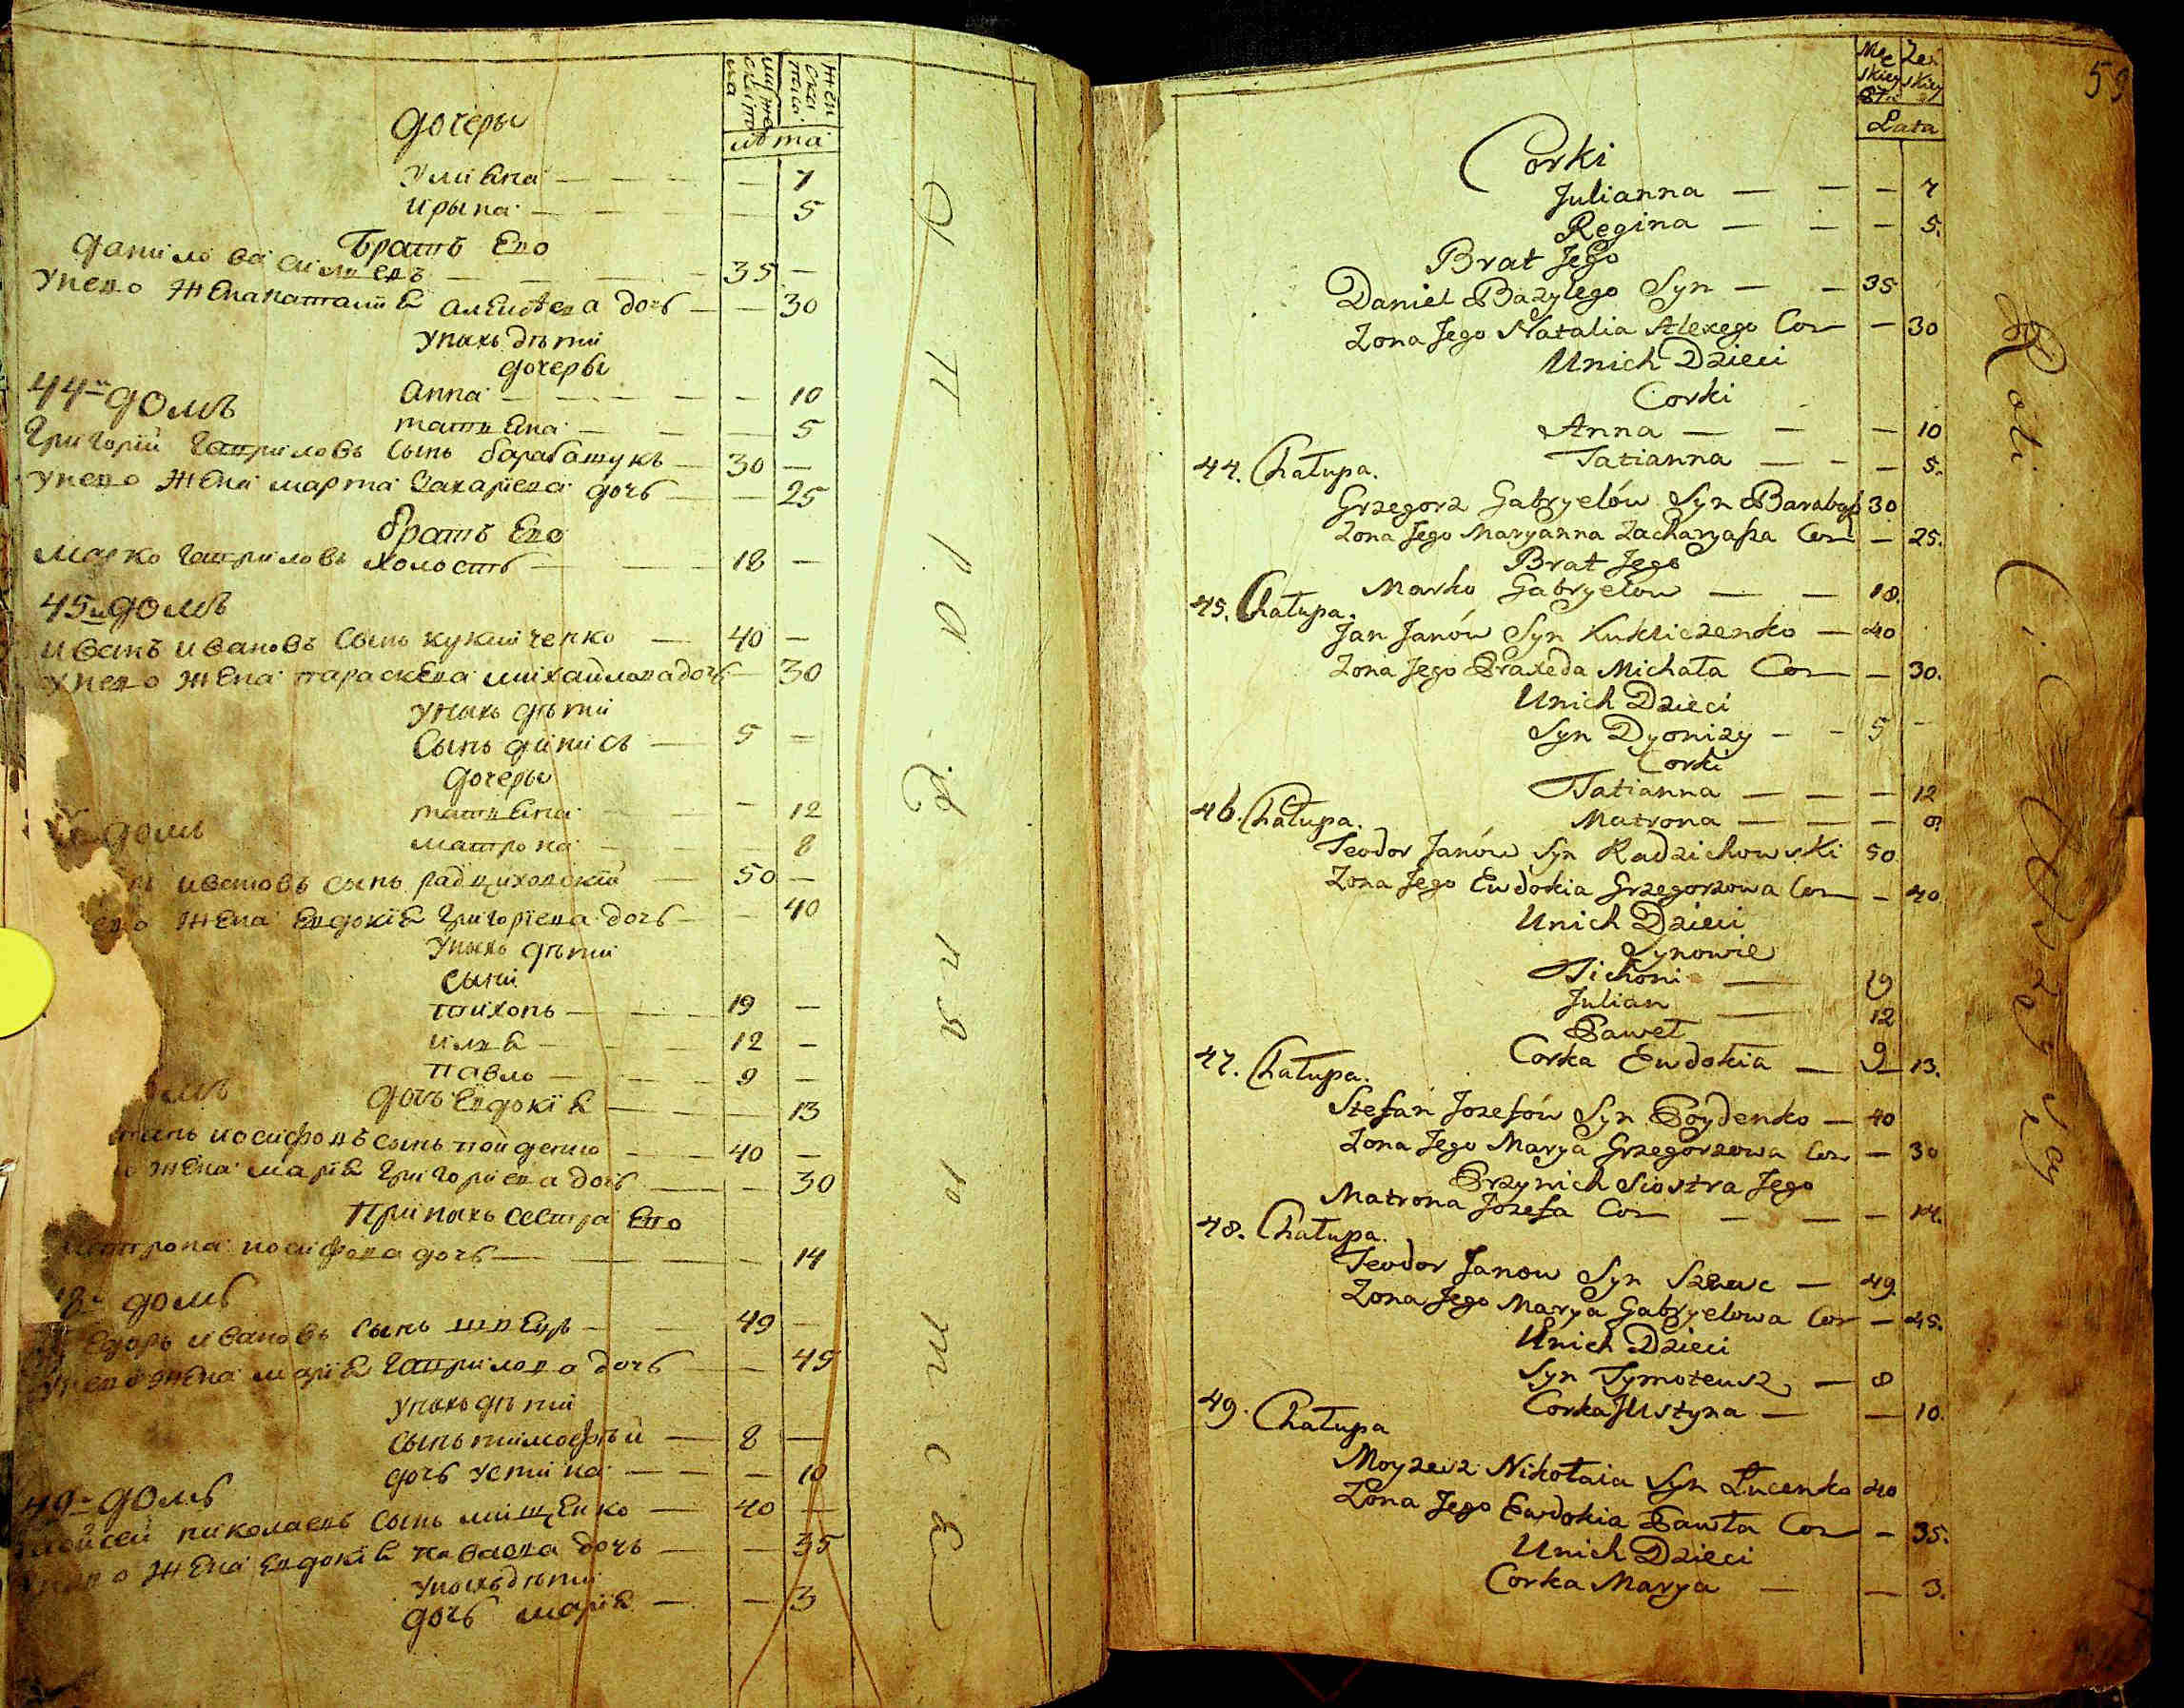 мужеска женска
лѣта
дочеры
Улиѣна — — — — 7
Ирына — — — — 5
Братъ Его
Данило Василиевъ — — — 35 —
У него жена Наталиѣ Алеѯѣева дочь — — 30
У нихъ дѣти
дочеры
Анна — — — — 10
44й домъ
татиѣна — — — 5
Григорий Гавриловъ сынъ барабашукъ — 30 —
У него жена марта Захариева дочь — — 25
братъ Его
Марко Гавриловъ холостъ — — 18 —
45й домъ
Иванъ Ивановъ сынъ кукличенко — 40 —
У него жена параскева михайлова дочь — 30
У нихъ дѣти
Сынъ динисъ — 5 —
дочеры
татиѣна — — — 12
домъ
матрона — — — 8
Ивановъ сынъ радзиховский — 50 —
его жена Евдокїѣ Григорїева дочь — — 40
У нихъ дѣти
сыни
тихонъ — — — 19 —
илиѣ — — — 12 —
павло — — — 9 —
дочь Евдокїѣ — — — — 13
иосифовъ сынъ пойденко — — 40 —
жена мариѣ Григориева дочь — — — 30
При нихъ сестра Его
матрона иосифова дочь — — — — 14
домъ
Ивановъ сынъ швець — — 49 —
У него жена мариѣ Гаврилова дочь — — 45
У нихъ дѣти
сынъ тимофѣй — 8 —
дочь устина — — — 10
49й домъ
Мойсей николаевъ сынъ лищенко — 40 —
жена Евдокїѣ павлова дочь — — 35
У нихъ дѣти
дочь мариѣ — — 3
Męskiey Żeńskiey
Lata
59
Corki
Julianna — — — 7
Regina — — — 5.
Brat Jego
Daniel Bazylego Syn — — 35
Zona Jego Natalia Alexego Cor — 30
Unich Dzieci
Corki
Anna — — — 10
Tatianna — — — 5.
44. Chałupa.
Grzegorz Gabryelów Syn Barabasz 30
Zona Jego Maryanna Zacharyasza Cor — 25.
Brat Jego
Marko Gabryelow — — 18.
45. Chałupa.
Jan Janów Syn Kukliczenko — 40
Zona Jego Praxeda Michała Cor — 30.
Unich Dzieci
Syn Dyonizy — — 5 —
Corki
Tatianna — — — 12
Matrona — — — 8
46. Chałupa.
Teodor Janów Syn Radzichowski 50
Zona Jego Ewdokia Grzegorzowa Cor — 40
Unich Dzieci
Synowie
Tichoni — 19
Julian — 12
Paweł 9
Corka Ewdokia — — 13.
47. Chałupa.
Stefan Jozefów Syn Poydenko — 40
Zona Jego Marya Grzegorzowa Cor — 30
Przynich Siostra Jego
Matrona Jozefa Cor — — — 14.
48. Chałupa.
Teodor Janow Syn Szewc — 49.
Zona Jego Marya Gabryelowa Cor — 45.
Unich Dzieci
Syn Tymoteusz — 8
Corka Justyna — — 10.
49. Chałupa
Moyzesz Nikołaia Syn Łucenko 40
Zona Jego Ewdokia Pawła Cor — 35.
Unich Dzieci
Corka Marya — — 3.